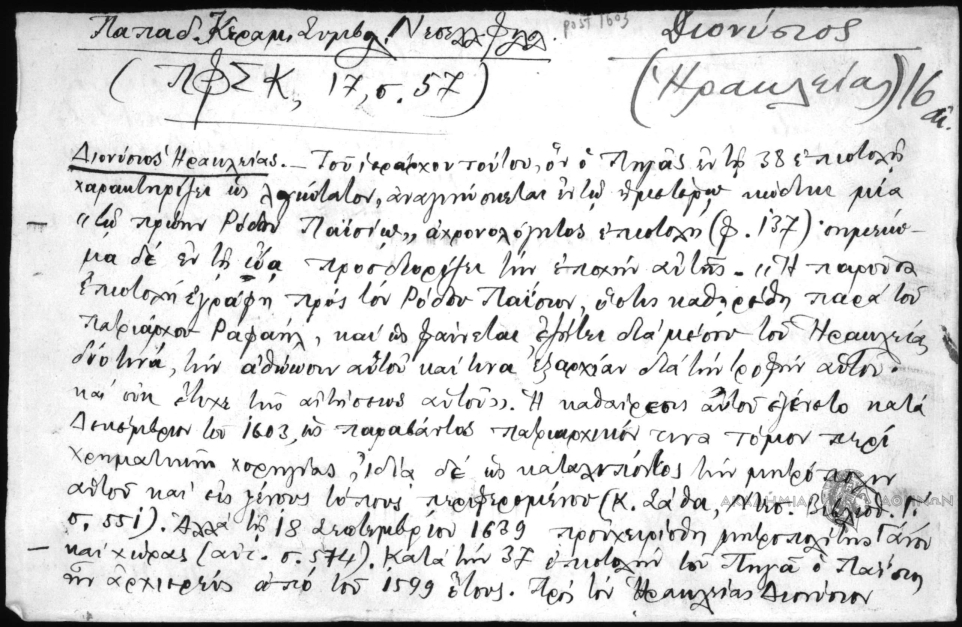 Παπαδ. Κεραμ. Συμβολ. Νεοελλ. φιλολ. post 1603 Διονύσιος
(ΠΦΣΚ, 17, σ. 57) (Ἡρακλείας) 16
Διονύσιος Ἡρακλείας. — Τοῦ ἱεράρχου τούτου, ὃν ὁ Πηγᾶς ἐν τῇ 38 ἐπιστολῇ
χαρακτηρίζει ὡς λογιώτατον, ἀναγινώσκεται ἐν τῷ ἡμετέρῳ κώδικι μία
— "τῷ πρώην Ρόδου Παϊσίῳ,, ἀχρονολόγητος ἐπιστολή (φ. 137)· σημείω-
μα δέ ἐν τῇ ᾤᾳ προσδιορίζει τήν ἐποχήν αὐτῆς. "Ἡ παροῦσα
ἐπιστολή ἐγράφη πρός τόν Ρόδου Παΐσιον, ὅστις καθηρέθη παρά τοῦ
Πατριάρχου Ραφαήλ, καί ὡς φαίνεται ἐζήτει διά μέσου τοῦ Ἡρακλείας
δύο τινά, τήν ἀθώωσιν αὐτοῦ καί τινα ἐξαρχίαν διά τήν τροφήν αὐτοῦ·
καί οὐκ ἔτυχε τῆς αἰτήσεως αὐτοῦ,,. Ἡ καθαίρεσις αὐτοῦ ἐγένετο κατά
Δεκέμβριον τοῦ 1603, ὡς παραβάντος πατριαρχικόν τινα τόμον περί
χρηματικῆς χορηγίας, ἰδίᾳ δέ ὡς καταλιπόντος τήν μητρόπολιν
αὐτοῦ καί εἰς ξένους τόπους περιφερομένου (Κ. Σάθα, Μεσ. Βιβλιοθ. Γ'.
σ. 551). Ἀλλά τῇ 18 Σεπτεμβρίου 1639 προεχειρίσθη μητροπολίτης Γάνου
— καί χώρας (αὐτ. σ. 574). Κατά τήν 37 ἐπιστολήν τοῦ Πηγᾶ ὁ Παΐσιος
ἦν ἀρχιερεύς ἀπό τοῦ 1599 ἔτους. Πρός τόν Ἡρακλείας Διονύσιον
ΑΚΑΔΗΜΙΑ ΑΘΗΝΩΝ